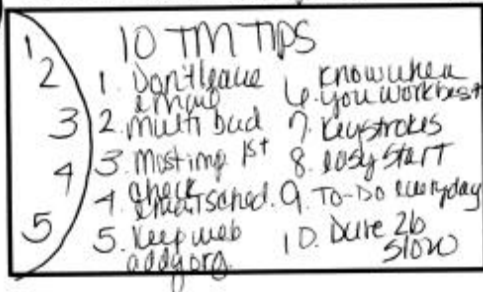 1
2
3
4
5
10 TM TIPS
1. Don't leave
email
2. multi bad
3. Most imp 1st
4. check
email sched.
5. Keep web
addy org.
6. know when
you work best
7. Keystrokes
8. easy start
9. TO-DO everyday
10. Dare 2b
slow